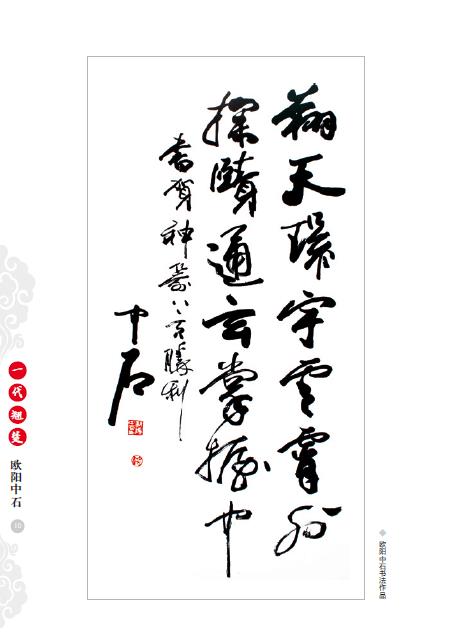 翔天环宇云霄外
探赜通玄掌握中
书贺神舟八号胜利
中石
一代翘楚
欧阳中石
10
欧阳中石书法作品